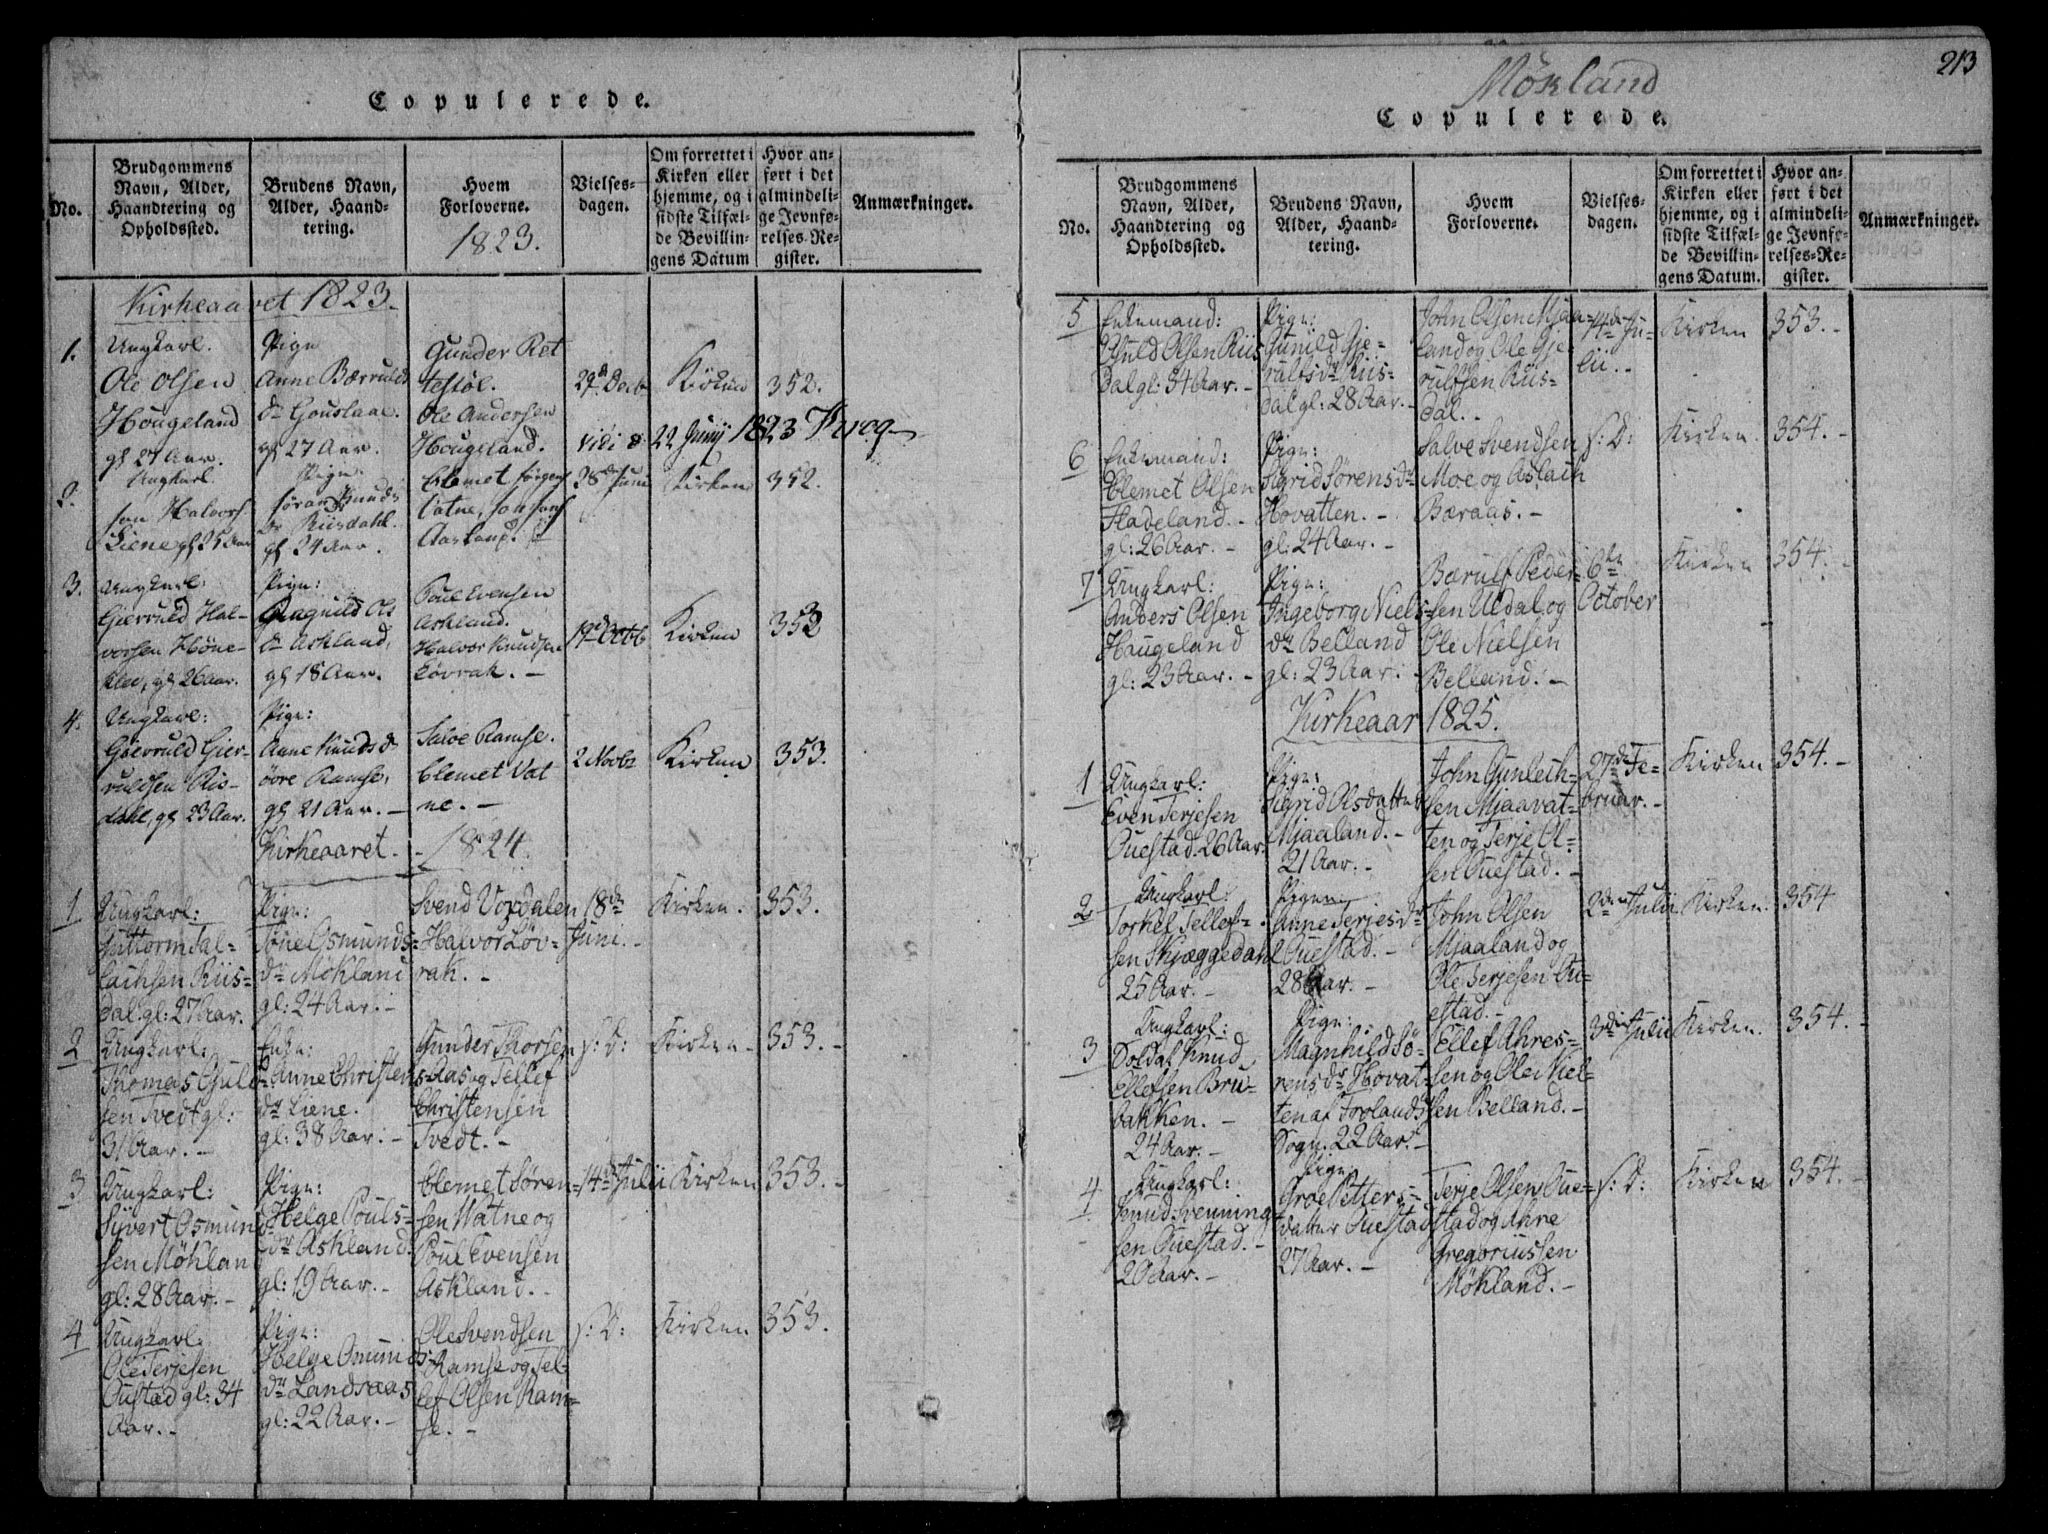 Copulerede.
No.
Brudgommens
Navn, Alder,
Haandtering og
Opholdssted.
Brudens Navn,
Alder, Haand-
tering.
Hvem
Forloverne.
1823.
Vielses-
dagen.
Om forrettet i
Kirken eller
hjemme, og i
sidste Tilfæl-
de Bevillin-
gens Datum
Hvor an-
ført i det
almindeli-
ge Jevnfø-
relses-Re-
gister.
Anmærkninger.
Kirkeaaret 1823.
1.
Ungkarl.
Ole Olsen
Hougeland
gl 27 Aar.
Pige
Anne Bærruld
dr Gouslaae.
gl 27 Aar.
Gunder Ret
testöl.
Ole Andersen
Hougeland.
Kirken
352.
22 Junij 1823 Krog
2.
Ungkarl.
Jon Halvors
Liene gl 25 Aar
Pige:
Knuds
dr Riisdahl.
gl 24 Aar.
Clemet Jörgens
Vatne,
Kirken
352.
3.
Ungkarl:
Gierruld Hal-
vorsen Höne-
klev, gl 26 Aar.
Pige:
Ragnild Ols
dr Askland,
gl 18 Aar.
Poul Evensen
Askland.
Halvor Knudsen
Lövrak. -
19d Octb
Kirken
353
4.
Ungkarl:
Gierruld Gier-
ruldsen Ris-
dahl, gl 23 Aar.
Pige:
Anne Knuds d
övre Ramse,
gl 21 Aar. -
Salve Ramse.
Clemet Vat
ne. -
2 Novbr
Kirken
353.
Kirkeaaret - 1824.
1
Ungkarl:
Guttorm Tal-
lachsen Riis-
dal. gl: 27 Aar.
Pige:
Osmunds-
dr Mökland
gl: 24 Aar. -
Svend Vordalen
Halvor Löv-
rak. -
18de
Juni. -
Kirken.
353.
2
Ungkarl:
Thomas
sen Tvedt gl:
31 Aar. -
Enke:
Anne Christens
dr Liene.
gl: 38 Aar. -
Gunder Thorsen
Aas og Tellef
Christensen
Tvedt. -
s: D:
Kirken -
353. -
3
Ungkarl:
Sivert Osmund
sen Mökland
gl: 28 Aar. -
Pige:
Helge Pouls-
dr Askland.
gl: 19 Aar. -
Clemet Sören-
sen Watne og
Poul Evensen
Askland. -
14de Julii
Kirken
353. -
4
Ungkarl:
Ole Terjesen
Oustad gl: 34
Aar. -
Pige:
Helge Omunds
dr Landsaas
gl: 22 Aar. -
Ole Svendsen
Ramse og Tel-
lef Olsen Ram-
se. -
s: D:
Kirken
353.
Mökland
213
Copulerede.
No.
Brudgommens
Navn, Alder,
Haandtering og
Opholdssted.
Brudens Navn,
Alder, Haand-
tering.
Hvem
Forloverne.
Vielses-
dagen.
Om forrettet i
Kirken eller
hjemme, og i
sidste Tilfæl-
de Bevillin-
gens Datum.
Hvor an-
ført i det
almindeli-
ge Jevnfø-
relses-Re-
gister.
Anmærkninger.
5
Enkemand:
Olsen Riis
dal gl: 34 Aar. -
Pige:
Gunild Gje-
rulfsdr Riis-
dal gl: 28 Aar. -
John Olsen Mjaa-
land og Ole Gje-
rulfsen Riis-
dal. -
14de Ju-
lii. -
Kirken
353. -
6
Enkemand:
Clemet Olsen
Fladeland. -
gl: 26 Aar. -
Pige:
Sigrid Sörensdr
Hovatten. -
gl: 24 Aar. -
Salve Svendsen
Moe og Aslach
Bæraas. -
s: D:
Kirken.
354. -
7
Ungkarl:
Anders Olsen
Haugeland
gl: 23 Aar. -
Pige:
Ingeborg Niels-
dr Belland
gl: 23 Aar.
Bærulf Peder-
sen Uldal og
Ole Nielsen
Belland. -
6te
October
Kirken
354. -
Kirkeaar 1825.
1
Ungkarl:
Even Terjesen
Ouestad. 26 Aar.
Pige:
Sigrid Olsdatter
Mjaaland. -
21 Aar. -
John Gunleik-
sen Mjaavat-
ten og Terje Ol-
sen Ouestad. -
27de Fe-
bruar. -
Kirken
354. -
2
Ungkarl:
Torkel Tellef-
sen Skjæggedahl
25 Aar. -
Pige
Anne Terjesdr
Ouestad. -
28 Aar. -
John Olsen
Mjaaland og
Ole Terjesen Ou-
estad. -
2den Julii
Kirken.
354
3
Ungkarl:
Soldat Knud
Ellefsen Bru-
bakken. -
24 Aar. -
Pige:
Magnhild Sö-
rensdr Hovat-
ten af Tovlands
Sogn. 22 Aar. -
Ellef Ahres-
sen og Ole Niel-
sen Belland. -
3die Julii
Kirken.
354. -
4
Ungkarl:
Knud Svenning-
sen Ouestad. -
20 Aar. -
Pige
Groe Petters-
datter Ouestad
27 Aar. -
Terje Olsen Oue-
stad og Ahre
Gregoriussen
Mökland. -
s: D:
Kirken
354. -